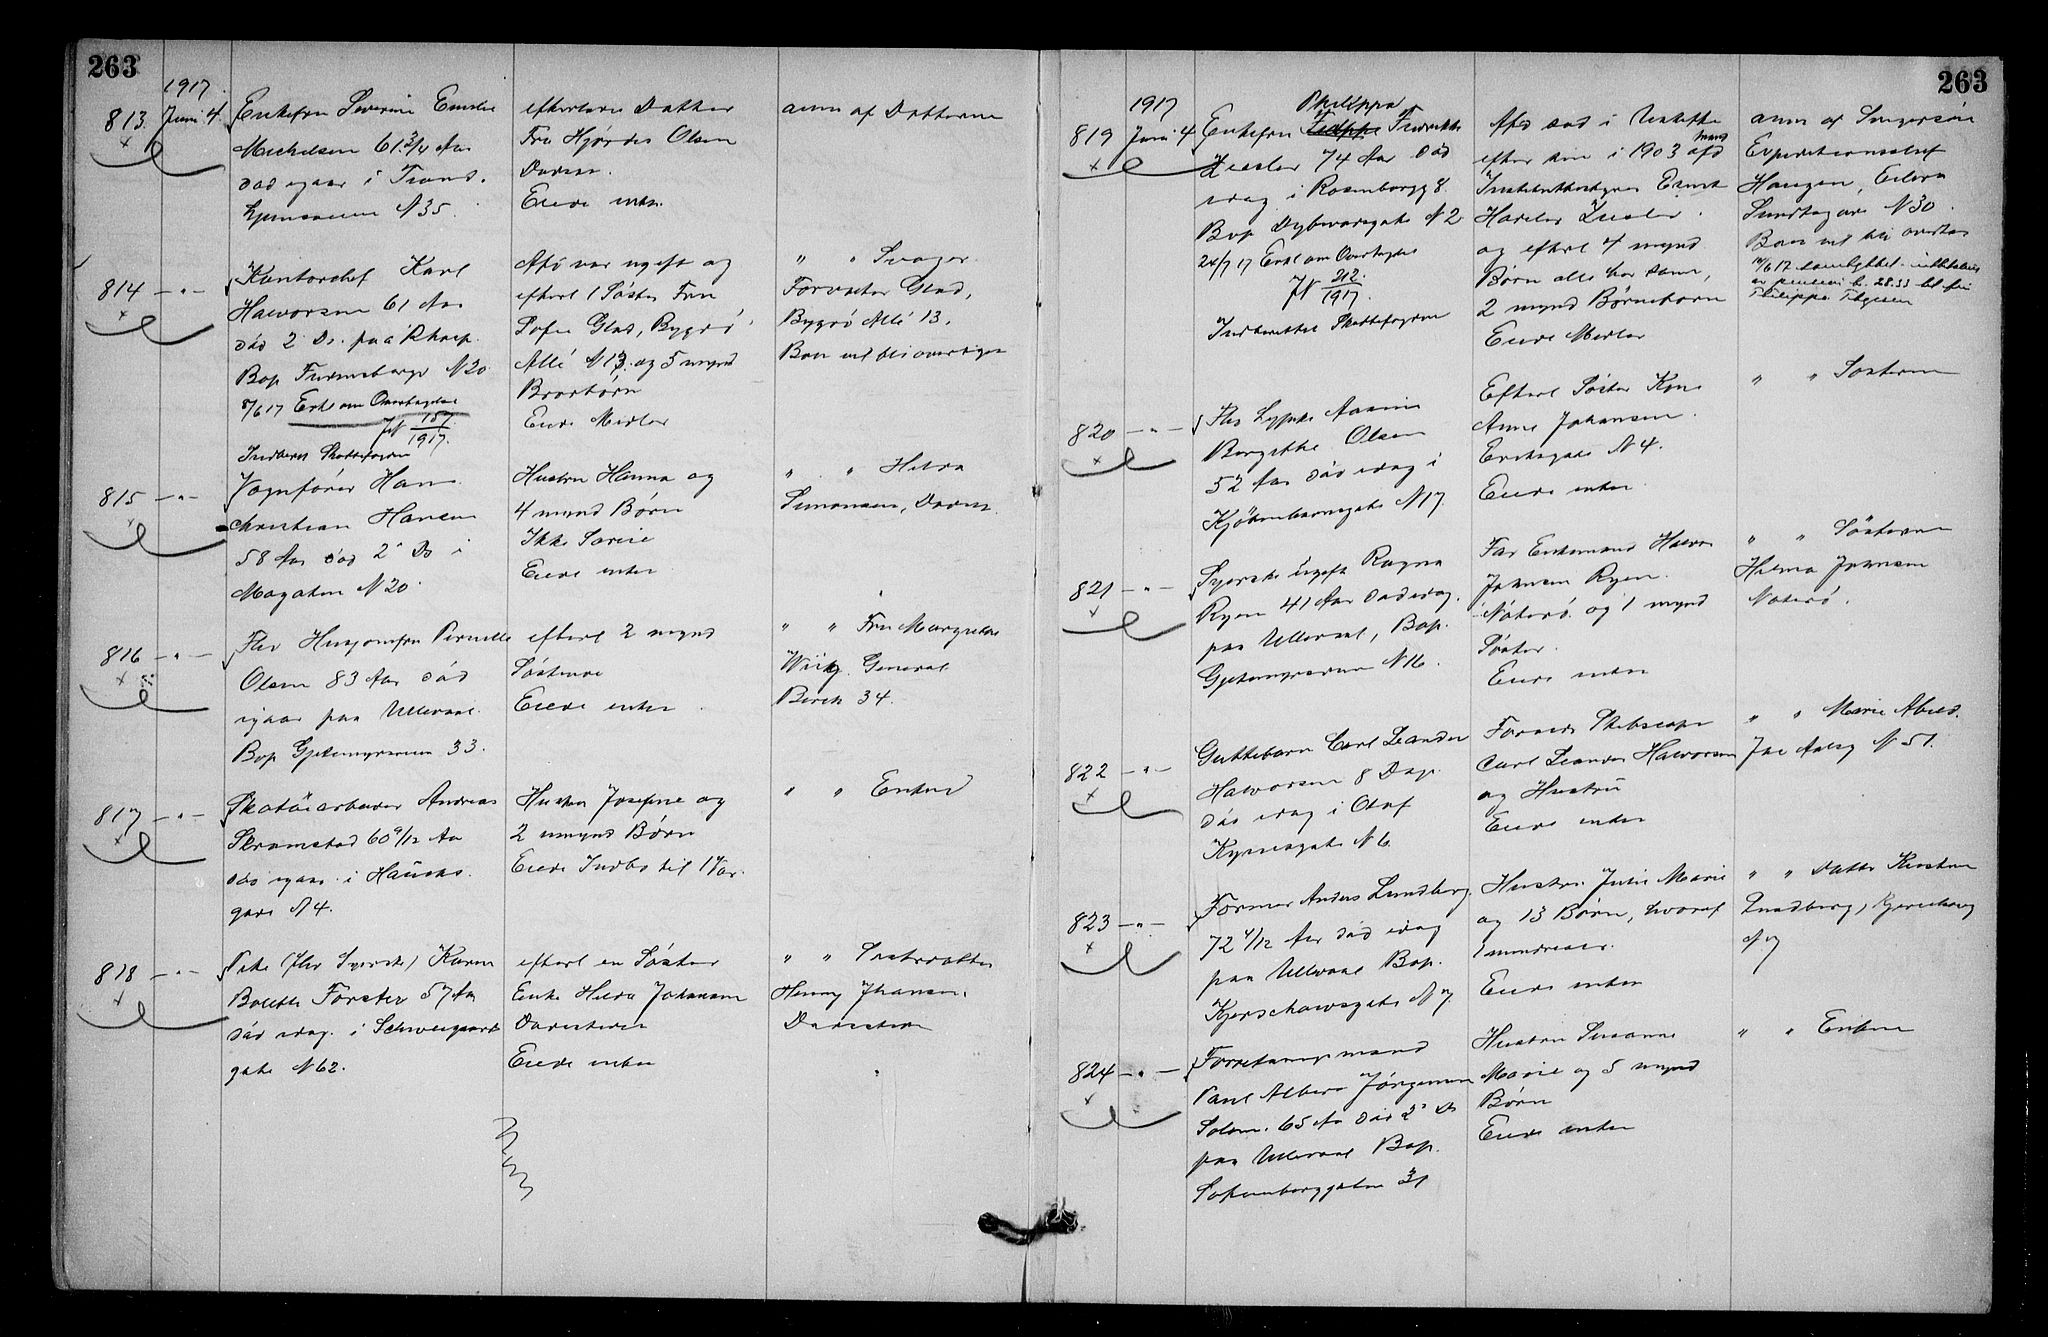 263
1917.
813. Juni 4. Enkefru Severine Emilie
Michelsen 61 3/12 Aar
død igaar i Trond-
hjemsveien N 35.
efterlever Datter
Fru Hjørdis Olsen
Darsm.
Eiede intet.
anm af Datteren
814 — " — Kontorchef Karl
Halvorsen 61 Aar
død 2 Ds. paa Rhosp.
Bop Fredensborgv N 20
8/6 17 Erkl om Overtagelse
JN 157/1917.
Indberet Skattefogden
Afd var ugift og
efterl 1 Søster Fru
Sofie Glad, Bygdø
Allé N 13 og 5 mynd
Brorbørn
Eiede Midler
" " Svoger
Forvalter Glad,
Bygdø Allé 13.
Boet vil bli overtaget
815 — " — Vognfører Hans
Christian Hansen
58 Aar død 2 Ds i
Maagatm N 20.
Hustru Hanna og
4 mynd Børn
Ikke Særeie
Eiede intet
" " Hilda
Simonsen, Darsm.
816 — " — Fhv Husjomfru Pernille
Olsen 83 Aar død
igaar paa Ullevaal.
Bop Gjetemyrsveien 33.
efterl 2 mynd
Søstre
Eiede intet
" " Fru Margrethe
Wiig. General
Birch 34.
817 — " — Skotøiarbeider Andreas
Skramstad 60 9/12 Aar
død igaar i Hausms
gade N 4.
Hustru Josefine og
2 umynd Børn
Eiede Indbo til 1 Vær.
" " Enken
818 — " — Pike (fhv Syerske) Karen
Bolette Forster 57 Aar
død idag i Schweigaards
gate N 62.
efterl en Søster
Enke Hilda Johansen
Darsteder
Eiede intet
" " Søsterdatter
Henny Johansen.
Darsteder
263
1917
819 Juni 4 Enkefru Philippa Fredrikke
Ziesler 74 Aar død
idag i Rosenborgg 8.
Bop Dybwadsgate N 2
24/7 17 Erkl om Overtagelse
JN 212/1917.
Indberettet Skattefogden
Afd sad i Uskifte
efter sin i 1903 afd Mand
Institutbestyrer Ernst
Ziesler.
og efterl 4 mynd
Børn alle her Børn,
2 mynd Børnebørn
Eiede Midler
anm af Svigersøn
Expeditionschef
Haugen, Eilert
Sundtsgade N 30
Boet vil bli overtat
820 — " — Fhv Sypike Aasine
Borgithe Olsen
52 Aar død idag i
Kjøbenhavnsgate N 17.
Efterl Søster Kone
Anne Johansen
Eriksgate N 4.
Eiede intet.
" " Søsteren
821 — " — Syerske ugift Ragna
Ryen 41 Aar død idag.
paa Ullevaal, Bop.
Gjetemyrsveien N 16.
Far Enkemand Halvor
Johnsen Ryen.
Nøterø. og 1 mynd
Søster.
Eiede intet
" " Søsteren
Helma Johnsen
Nøterø.
822 — " — Guttebarn Carl Leander
Halvorsen 8 Dage
død idag i Olaf
Kyrresgate N 6
Carl Leander Halvorsen
og Hustru
Eiede intet
" " Marie
N 51.
823 — " — Former Anders Lundberg
72 4/12 Aar død idag
paa Ullevaal Bop.
Kjerschowsgate N 7.
Hustru Julie Marie
og 13 Børn, hvoraf
1 mindreaar.
Eiede intet
" " Datter Kirstine
Lundberg, Kjerschowg
N 7
824 — " — Forretningsmand
Paul Albert Jørgensen
Solem. 65 Aar død 2 Ds
paa Ullevaal Bop.
Sofienberggaten 31
Hustru Susanne
Marie og 5 mynd
Børn
Eiede intet
" " Enken